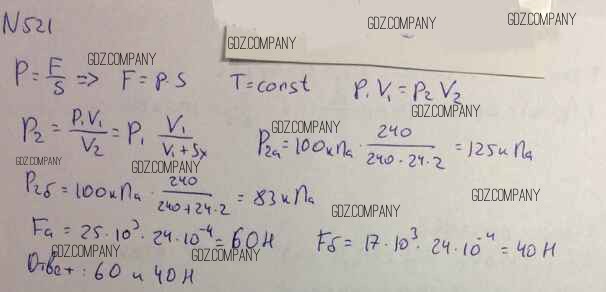 N521
GDZ.COMPANY GDZ.COMPANY
GDZ.COMPANY GDZ.COMPANY
P = F/S => F = P·S T = const P₁V₁ = P₂V₂
GDZ.COMPANY
P₂ = P₁V₁/V₂ = P₁ V₁/(V₁+Sx) P₂а = 100кПа · 240/(240-24·2) = 125кПа
GDZ.COMPANY
GDZ.COMPANY GDZ.COMPANY
P₂б = 100кПа · 240/(240+24·2) = 83кПа
GDZ.COMPANY
GDZ.COMPANY
Fа = 25·10³·24·10⁻⁴ = 60Н Fб = 17·10³·24·10⁻⁴ = 40Н
GDZ.COMPANY GDZ.COMPANY GDZ.COMPANY
Ответ: 60 и 40Н